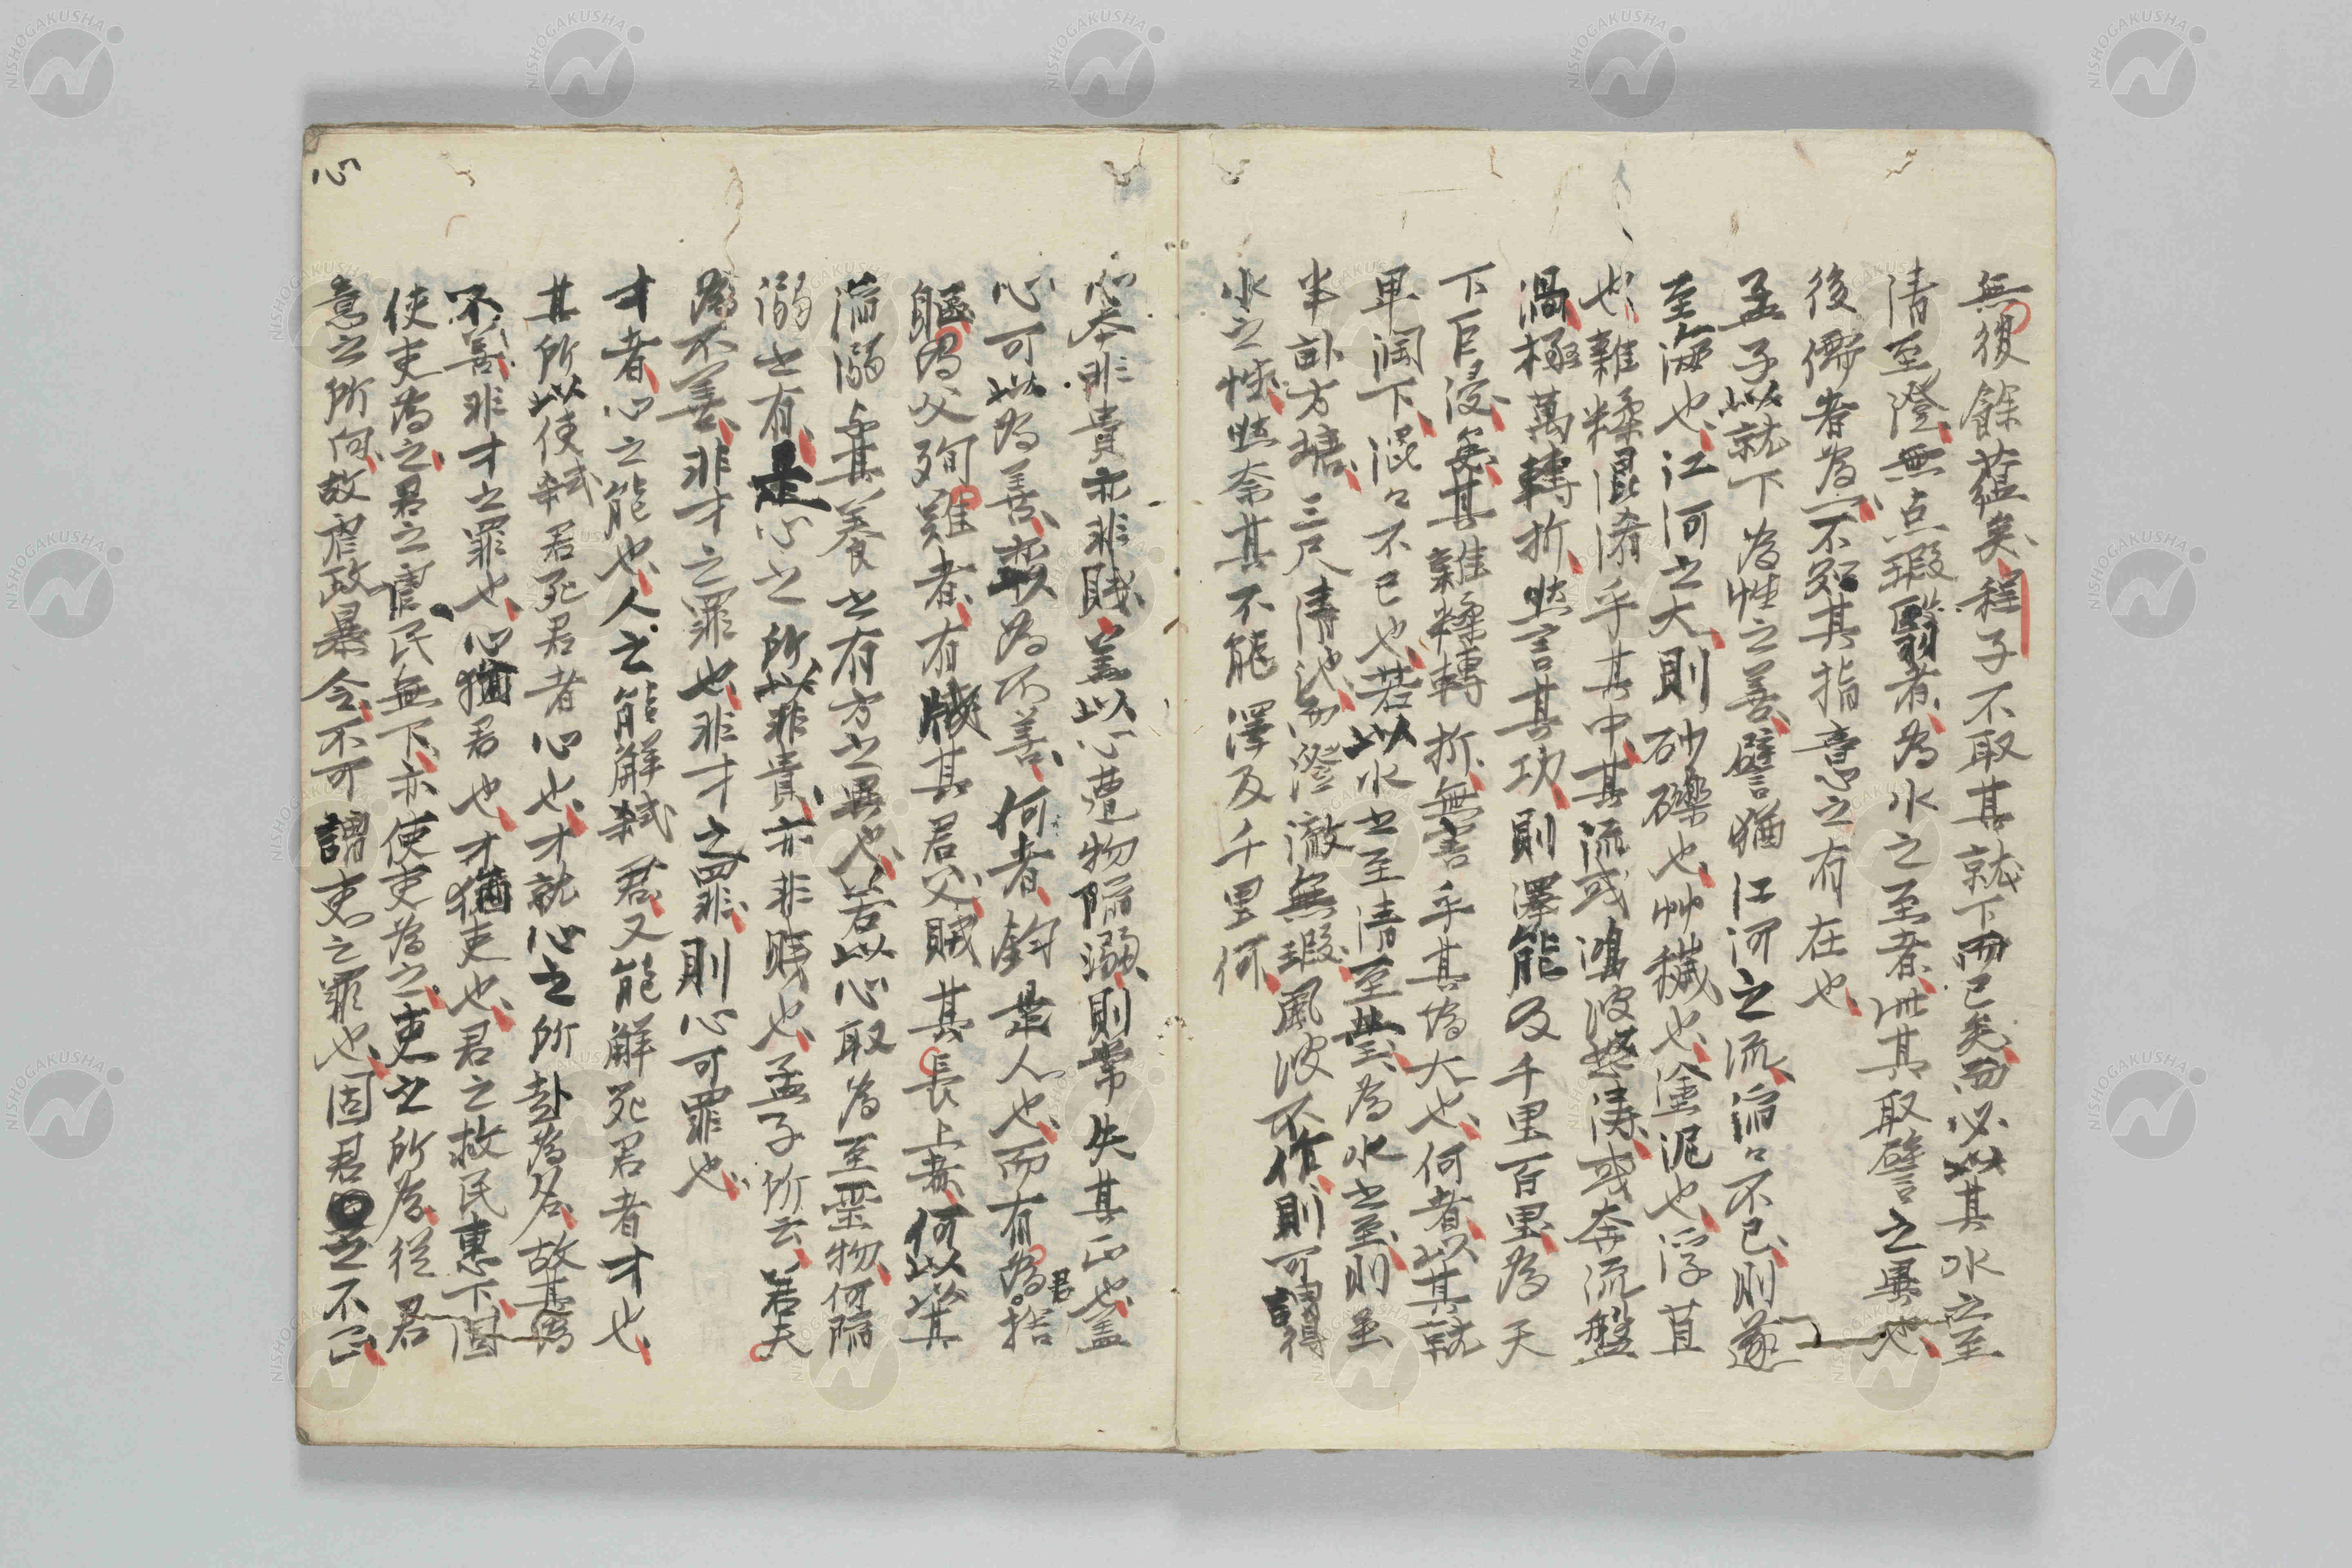 無復餘蘊矣程子不取其就下而已矣而必以其水之至
清至澄無点瑕翳者為水之至者此其取譬之異也
後儒者為不知其指意之有在也
孟子以就下為性之善譬猶江河之流滔々不已則遂
至海也江河之大則砂礫也艸穢也塗泥也浮苴
也雜糅混淆乎其中其流或鴻波驚濤或奔流盤
渦極萬轉折然言其功則澤能及千里百里為天
下巨浸矣其雜糅轉折無害乎其為大也何者以其就
卑潤下混々不已也若以水之至清至瑩為水之至則至
半畝方塘三尺清池澄澈無瑕風波不作則可謂得
水之性然奈其不能澤及千里何
心本非貴亦非賤蓋以心遭物陷溺則常失其正也蓋
心可以為善亦為不善何者鈞是人也而有為君捨
軀為父殉難者有戕其君父賊其長上者何以其
陷溺与其養之有方之異也若以心取為至霊物何陷
溺之有是心之所以非貴亦非賤也孟子所云若夫
為不善非才之罪也非才之罪則心可罪也
才者心之能也人之能解弑君又能解死君者才也
其所以使弑君死君者心也才就心之所卦為名故其為
不善非才之罪也心猶君也才猶吏也君之救民惠下固
使吏為之君之害民無下亦使吏為之吏之所為從君
意之所向故虐政暴令不可謂吏之罪也固君之不正
心